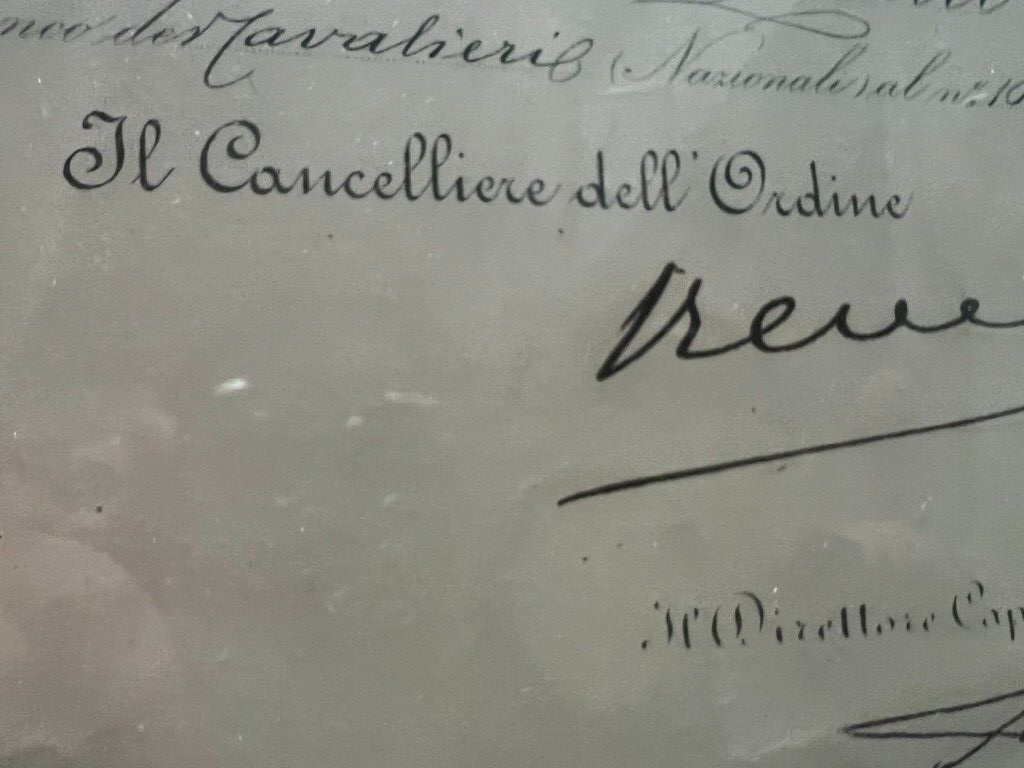 dei Cavalieri (Nazionali) al nº. 16
Il Cancelliere dell'Ordine
Il Direttore Cap